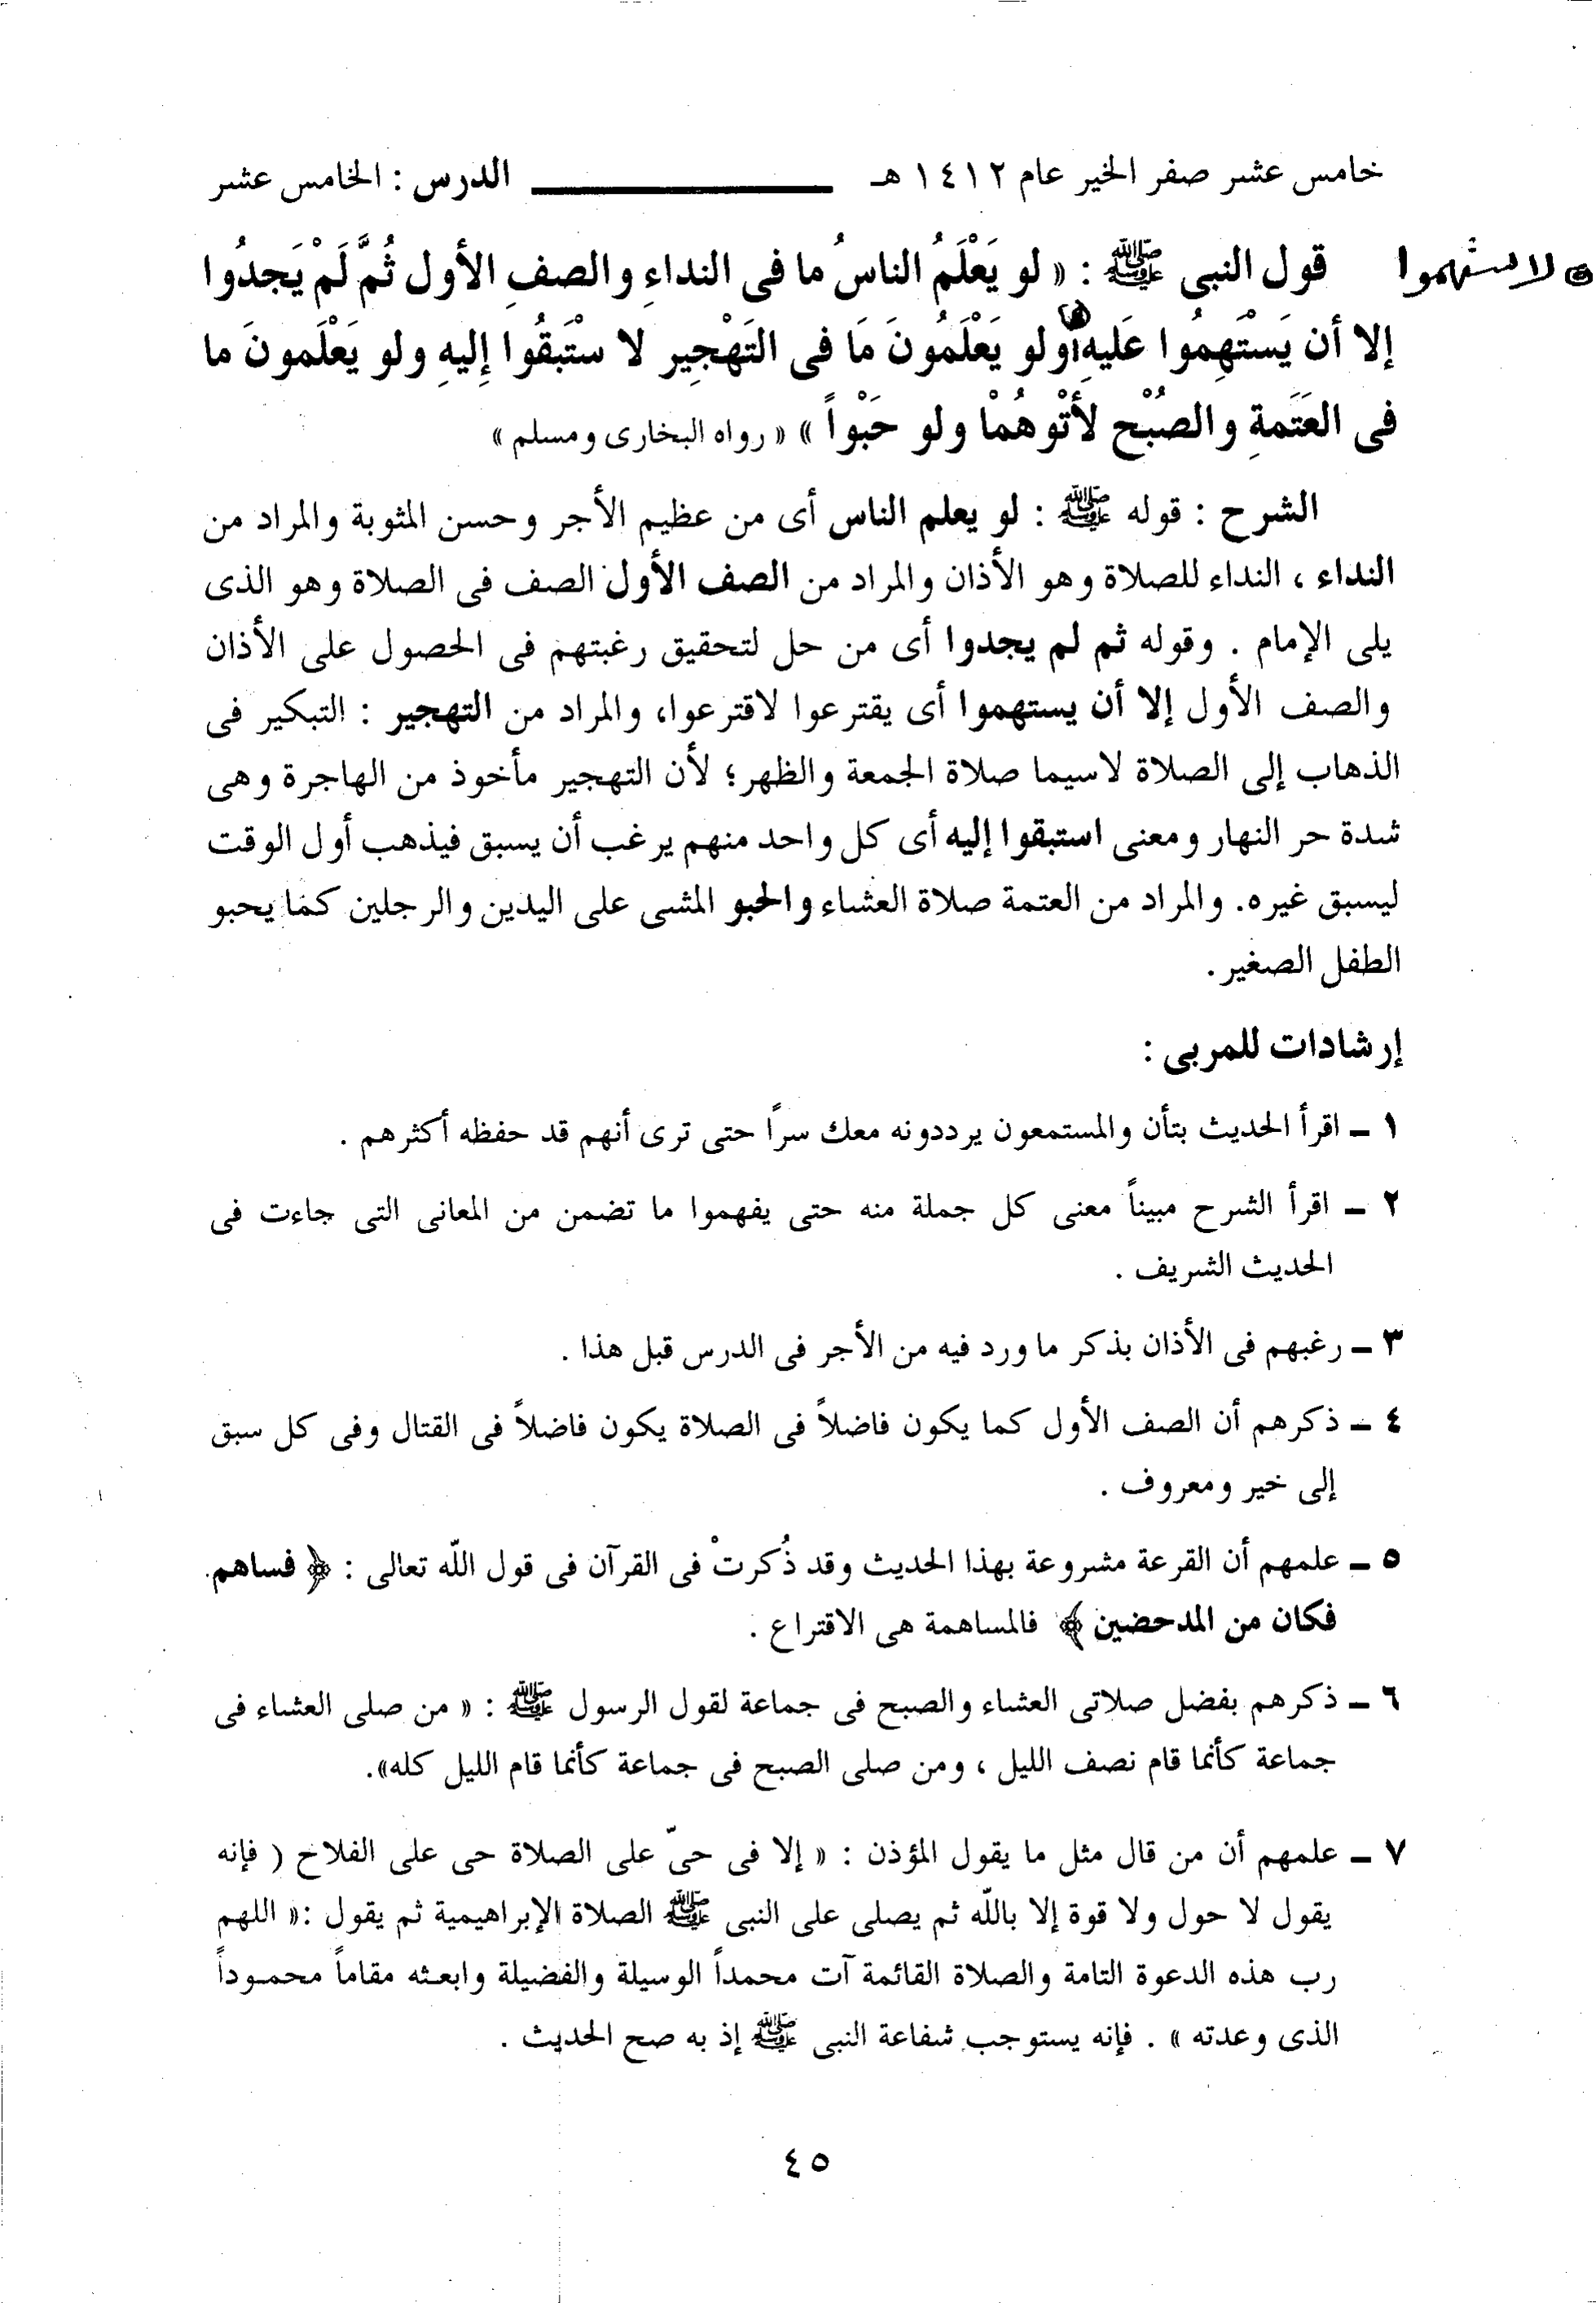 خامس عشر صفر الخير عام ١٤١٢ هـ الدرس : الخامس عشر
لاستهموا
قول النبى ﷺ : « لو يَعْلَمُ الناسُ ما فى النداءِ والصفِ الأول ثُمَّ لَمْ يَجدُوا
إلا أن يَسْتَهِمُوا عَليهِ ولو يَعْلَمُونَ مَا فى التَهْجِيرِ لا سْتَبَقُوا إِليهِ ولو يَعْلَمونَ ما
فى العَتَمةِ والصُبْح لأَتْوهُمْا ولو حَبْواً » « رواه البخارى ومسلم »
الشرح : قوله ﷺ : لو يعلم الناس أى من عظيم الأجر وحسن المثوبة والمراد من
النداء ، النداء للصلاة وهو الأذان والمراد من الصف الأول الصف فى الصلاة وهو الذى
يلى الإمام . وقوله ثم لم يجدوا أى من حل لتحقيق رغبتهم فى الحصول على الأذان
والصف الأول إلا أن يستهموا أى يقترعوا لاقترعوا، والمراد من التهجير : التبكير فى
الذهاب إلى الصلاة لاسيما صلاة الجمعة والظهر؛ لأن التهجير مأخوذ من الهاجرة وهى
شدة حر النهار ومعنى استبقوا إليه أى كل واحد منهم يرغب أن يسبق فيذهب أول الوقت
ليسبق غيره. والمراد من العتمة صلاة العشاء والحبو المشى على اليدين والرجلين كما يحبو
الطفل الصغير.
إرشادات للمربى :
١ ــ اقرأ الحديث بتأن والمستمعون يرددونه معك سراً حتى ترى أنهم قد حفظه أكثرهم .
٢ ــ اقرأ الشرح مبيناً معنى كل جملة منه حتى يفهموا ما تضمن من المعانى التى جاءت فى
الحديث الشريف .
٣ ــ رغبهم فى الأذان بذكر ما ورد فيه من الأجر فى الدرس قبل هذا .
٤ ــ ذكرهم أن الصف الأول كما يكون فاضلاً فى الصلاة يكون فاضلاً فى القتال وفى كل سبق
إلى خير ومعروف .
٥ ــ علمهم أن القرعة مشروعة بهذا الحديث وقد ذُكرتْ فى القرآن فى قول اللّه تعالى : ﴿ فساهم
فكان من المدحضين ﴾ فالمساهمة هى الاقتراع .
٦ ــ ذكرهم بفضل صلاتى العشاء والصبح فى جماعة لقول الرسول ﷺ : « من صلى العشاء فى
جماعة كأنما قام نصف الليل ، ومن صلى الصبح فى جماعة كأنما قام الليل كله».
٧ ــ علمهم أن من قال مثل ما يقول المؤذن : « إلا فى حىّ على الصلاة حى على الفلاح ( فإنه
يقول لا حول ولا قوة إلا باللّه ثم يصلى على النبى ﷺ الصلاة الإبراهيمية ثم يقول :« اللهم
رب هذه الدعوة التامة والصلاة القائمة آت محمداً الوسيلة والفضيلة وابعثه مقاماً محموداً
الذى وعدته » . فإنه يستوجب شفاعة النبى ﷺ إذ به صح الحديث .
٤٥